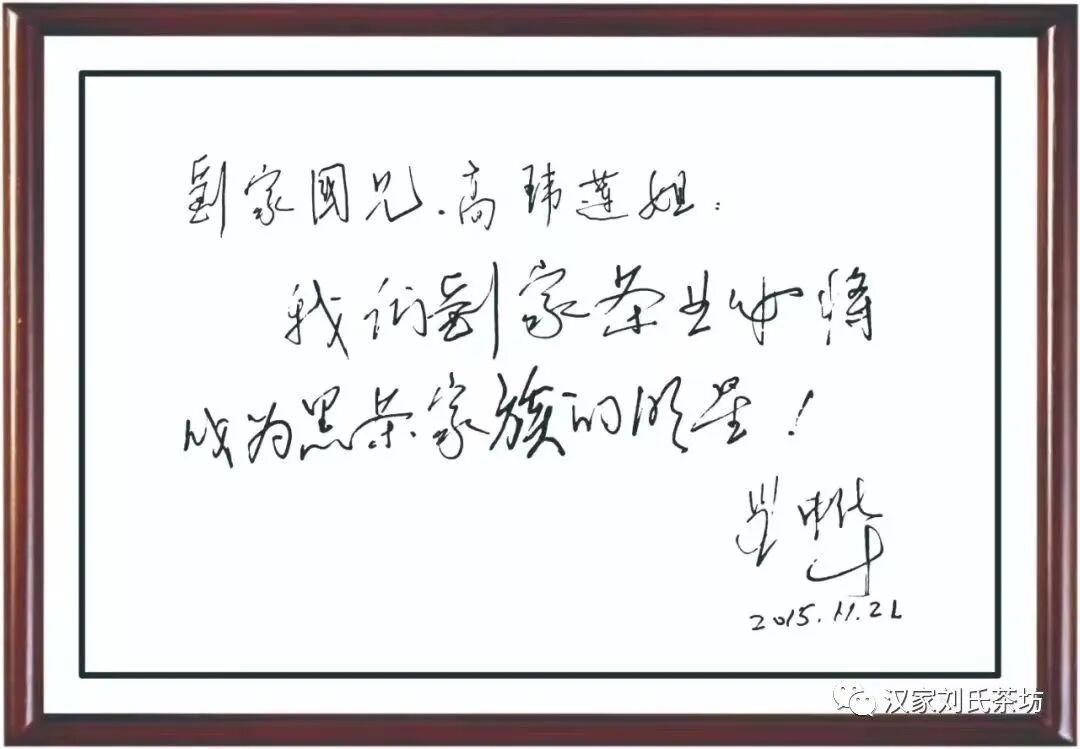 劉家國兄.高玮蓮姐:
我们劉家茶业必将
成为黑茶家族的明星!
2015.11.21
汉家刘氏茶坊